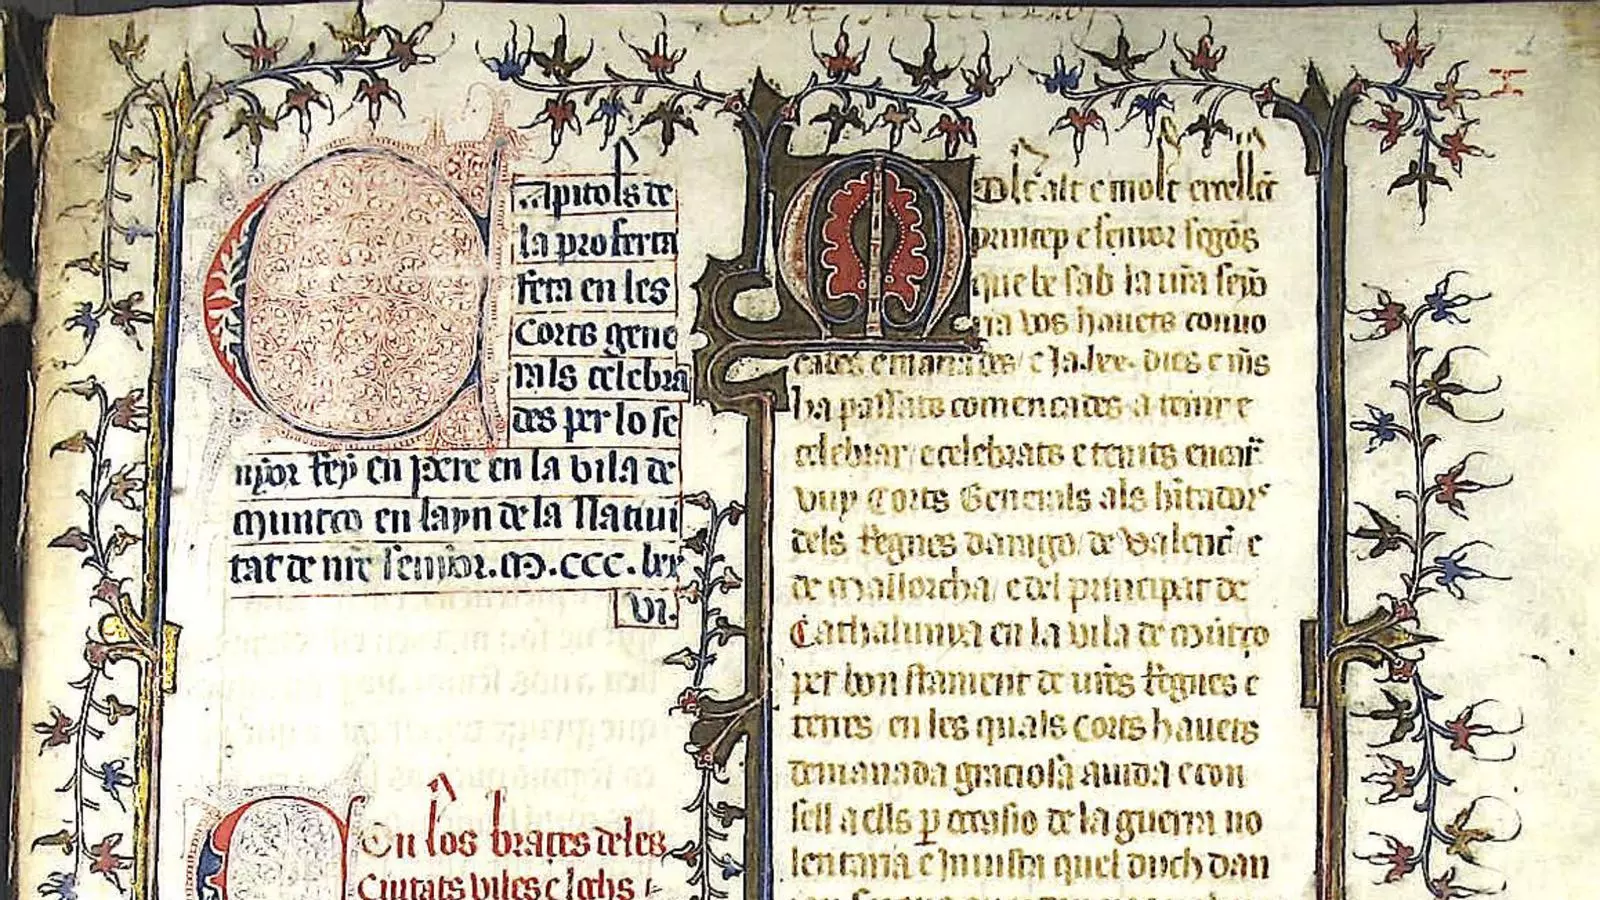 Capitols de
la proferta
feta en les
Corts gene
rals celebra
des per lo se
nyor Rey en Pere en la vila de
Muntço en layn de la Natiui
tat de nr̄e senyor. M. CCC. lxx
vi.
En los braçes deles
Ciutats viles e lochs
Molt alt e molt excellēt
princep e senyor segōs
que be sab la vr̄a senyo
ria vos hauets conuo
cades e manades e ja .lxx. dies e mēs
ha passats comencades a tenir e
celebrar e celebrats e tenits encara
vuy Corts Generals als habitadors
dels Regnes darago de Valencia e
de Mallorcha e del principat de
Cathalunya en la vila de Mūtço
per bon stament de vr̄es Regnes e
terres en les quals Corts hauets
demanada graciosa aiuda e con
sell a ells ꝑ occasio de la guerra uo
lentaria e Iniusta quel duch dan